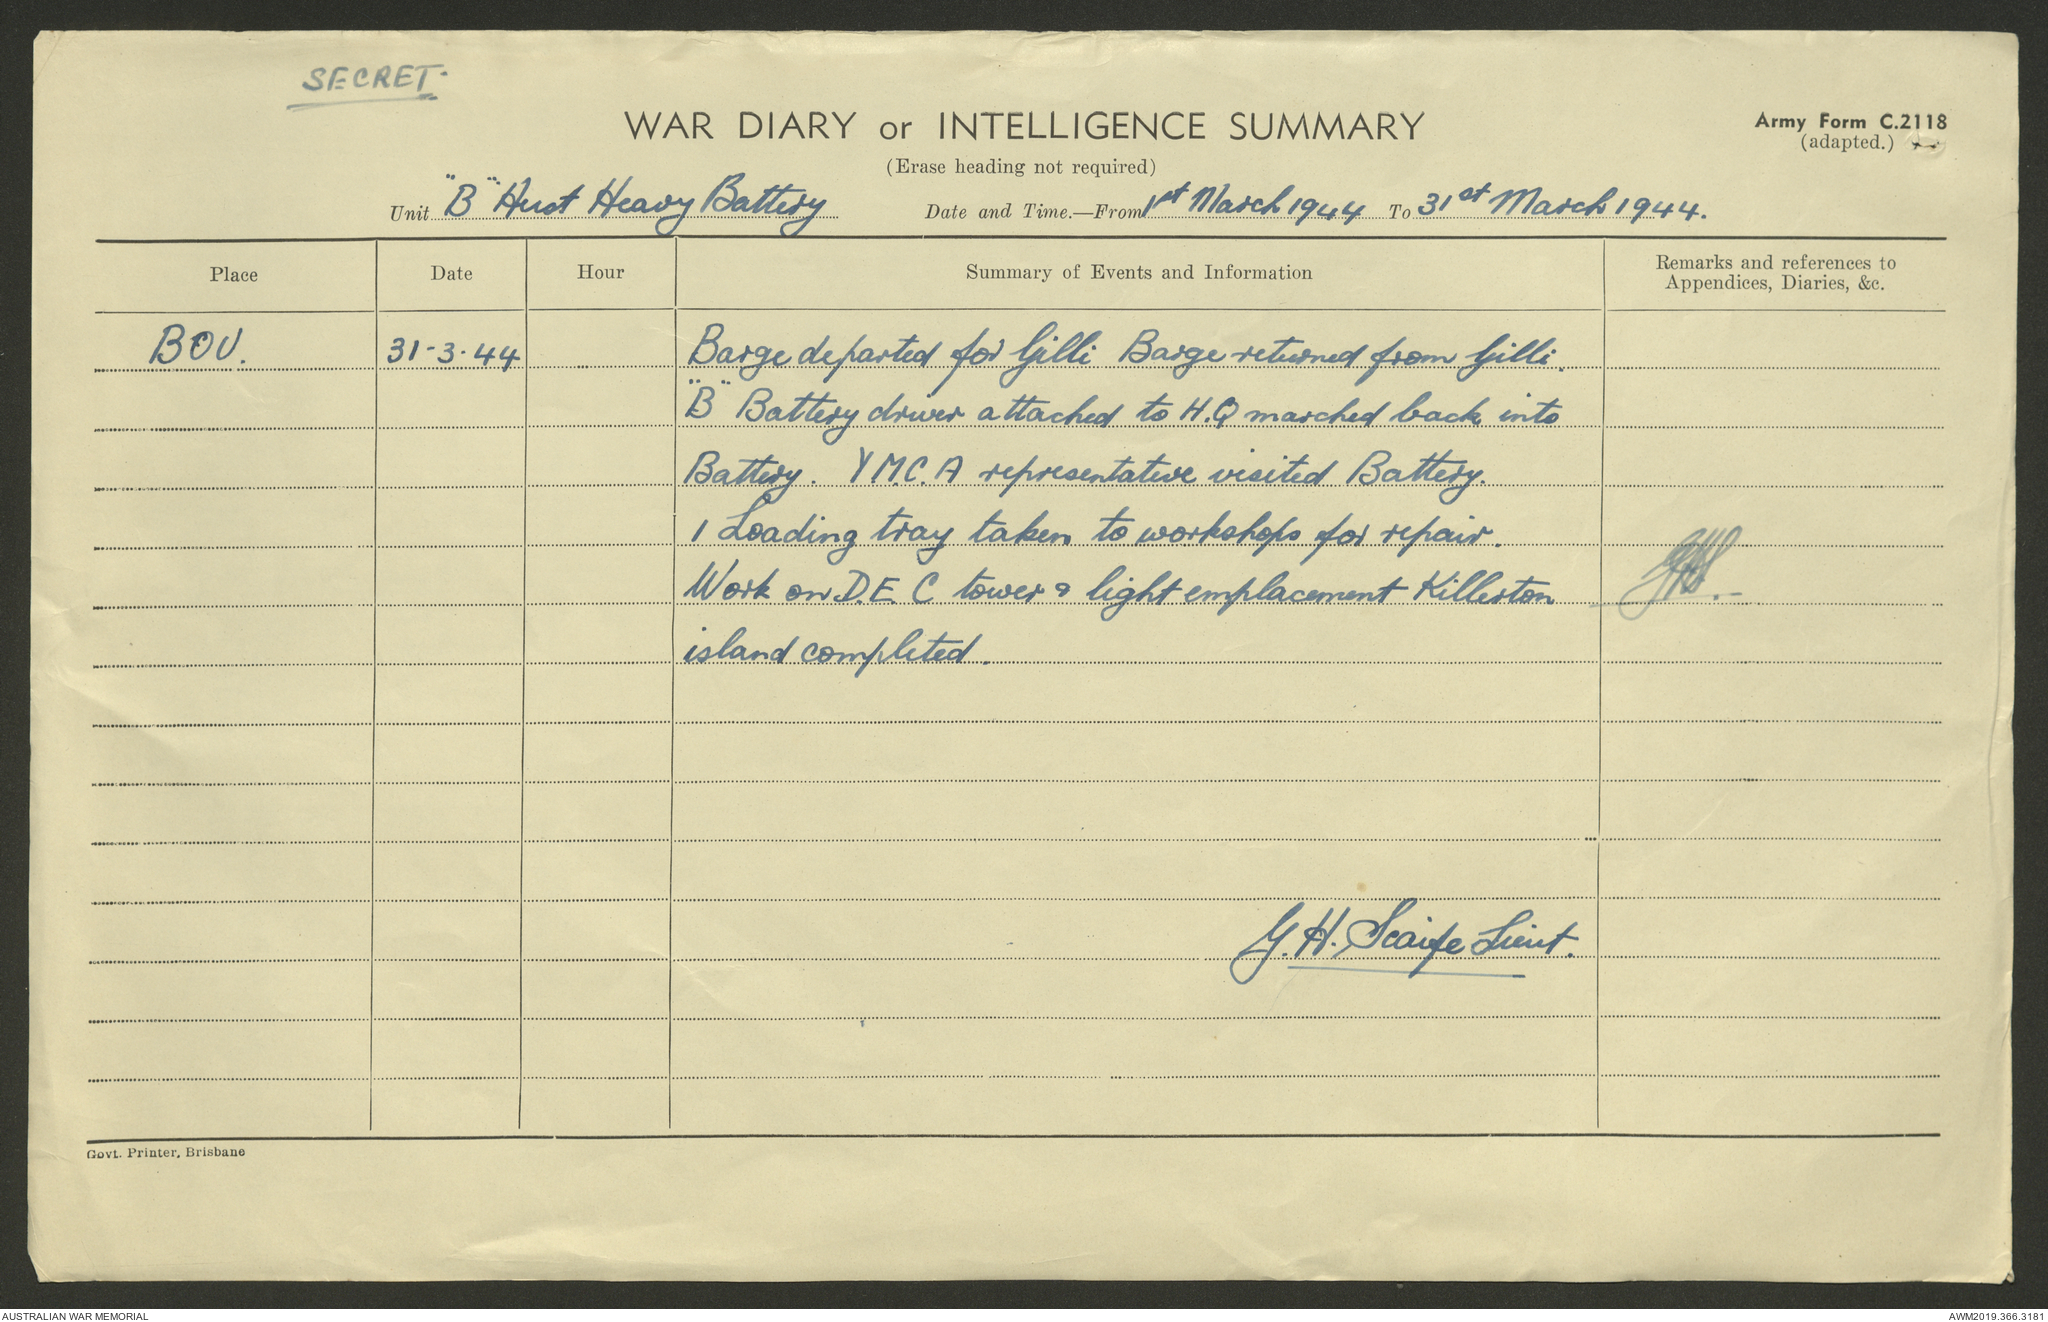 SECRET.
WAR DIARY or INTELLIGENCE SUMMARY
Army Form C.2118
(adapted.)
(Erase heading not required)
Unit "B" Aust Heavy Battery Date and Time.—From 1st March 1944 To 31st March 1944.
Place Date Hour Summary of Events and Information Remarks and references to
Appendices, Diaries, &c.
BOV. 31-3-44 Barge departed for Gilli Barge returned from Gilli.
"B" Battery driver attached to H.Q marched back into
Battery. Y M.C.A representative visited Battery.
1 Loading tray taken to workshops for repair.
Work on D.E.C tower & light emplacement Killerton
island completed.
G.H. Scaife Lieut.
Govt. Printer, Brisbane
AUSTRALIAN WAR MEMORIAL
AWM2019.366.3181